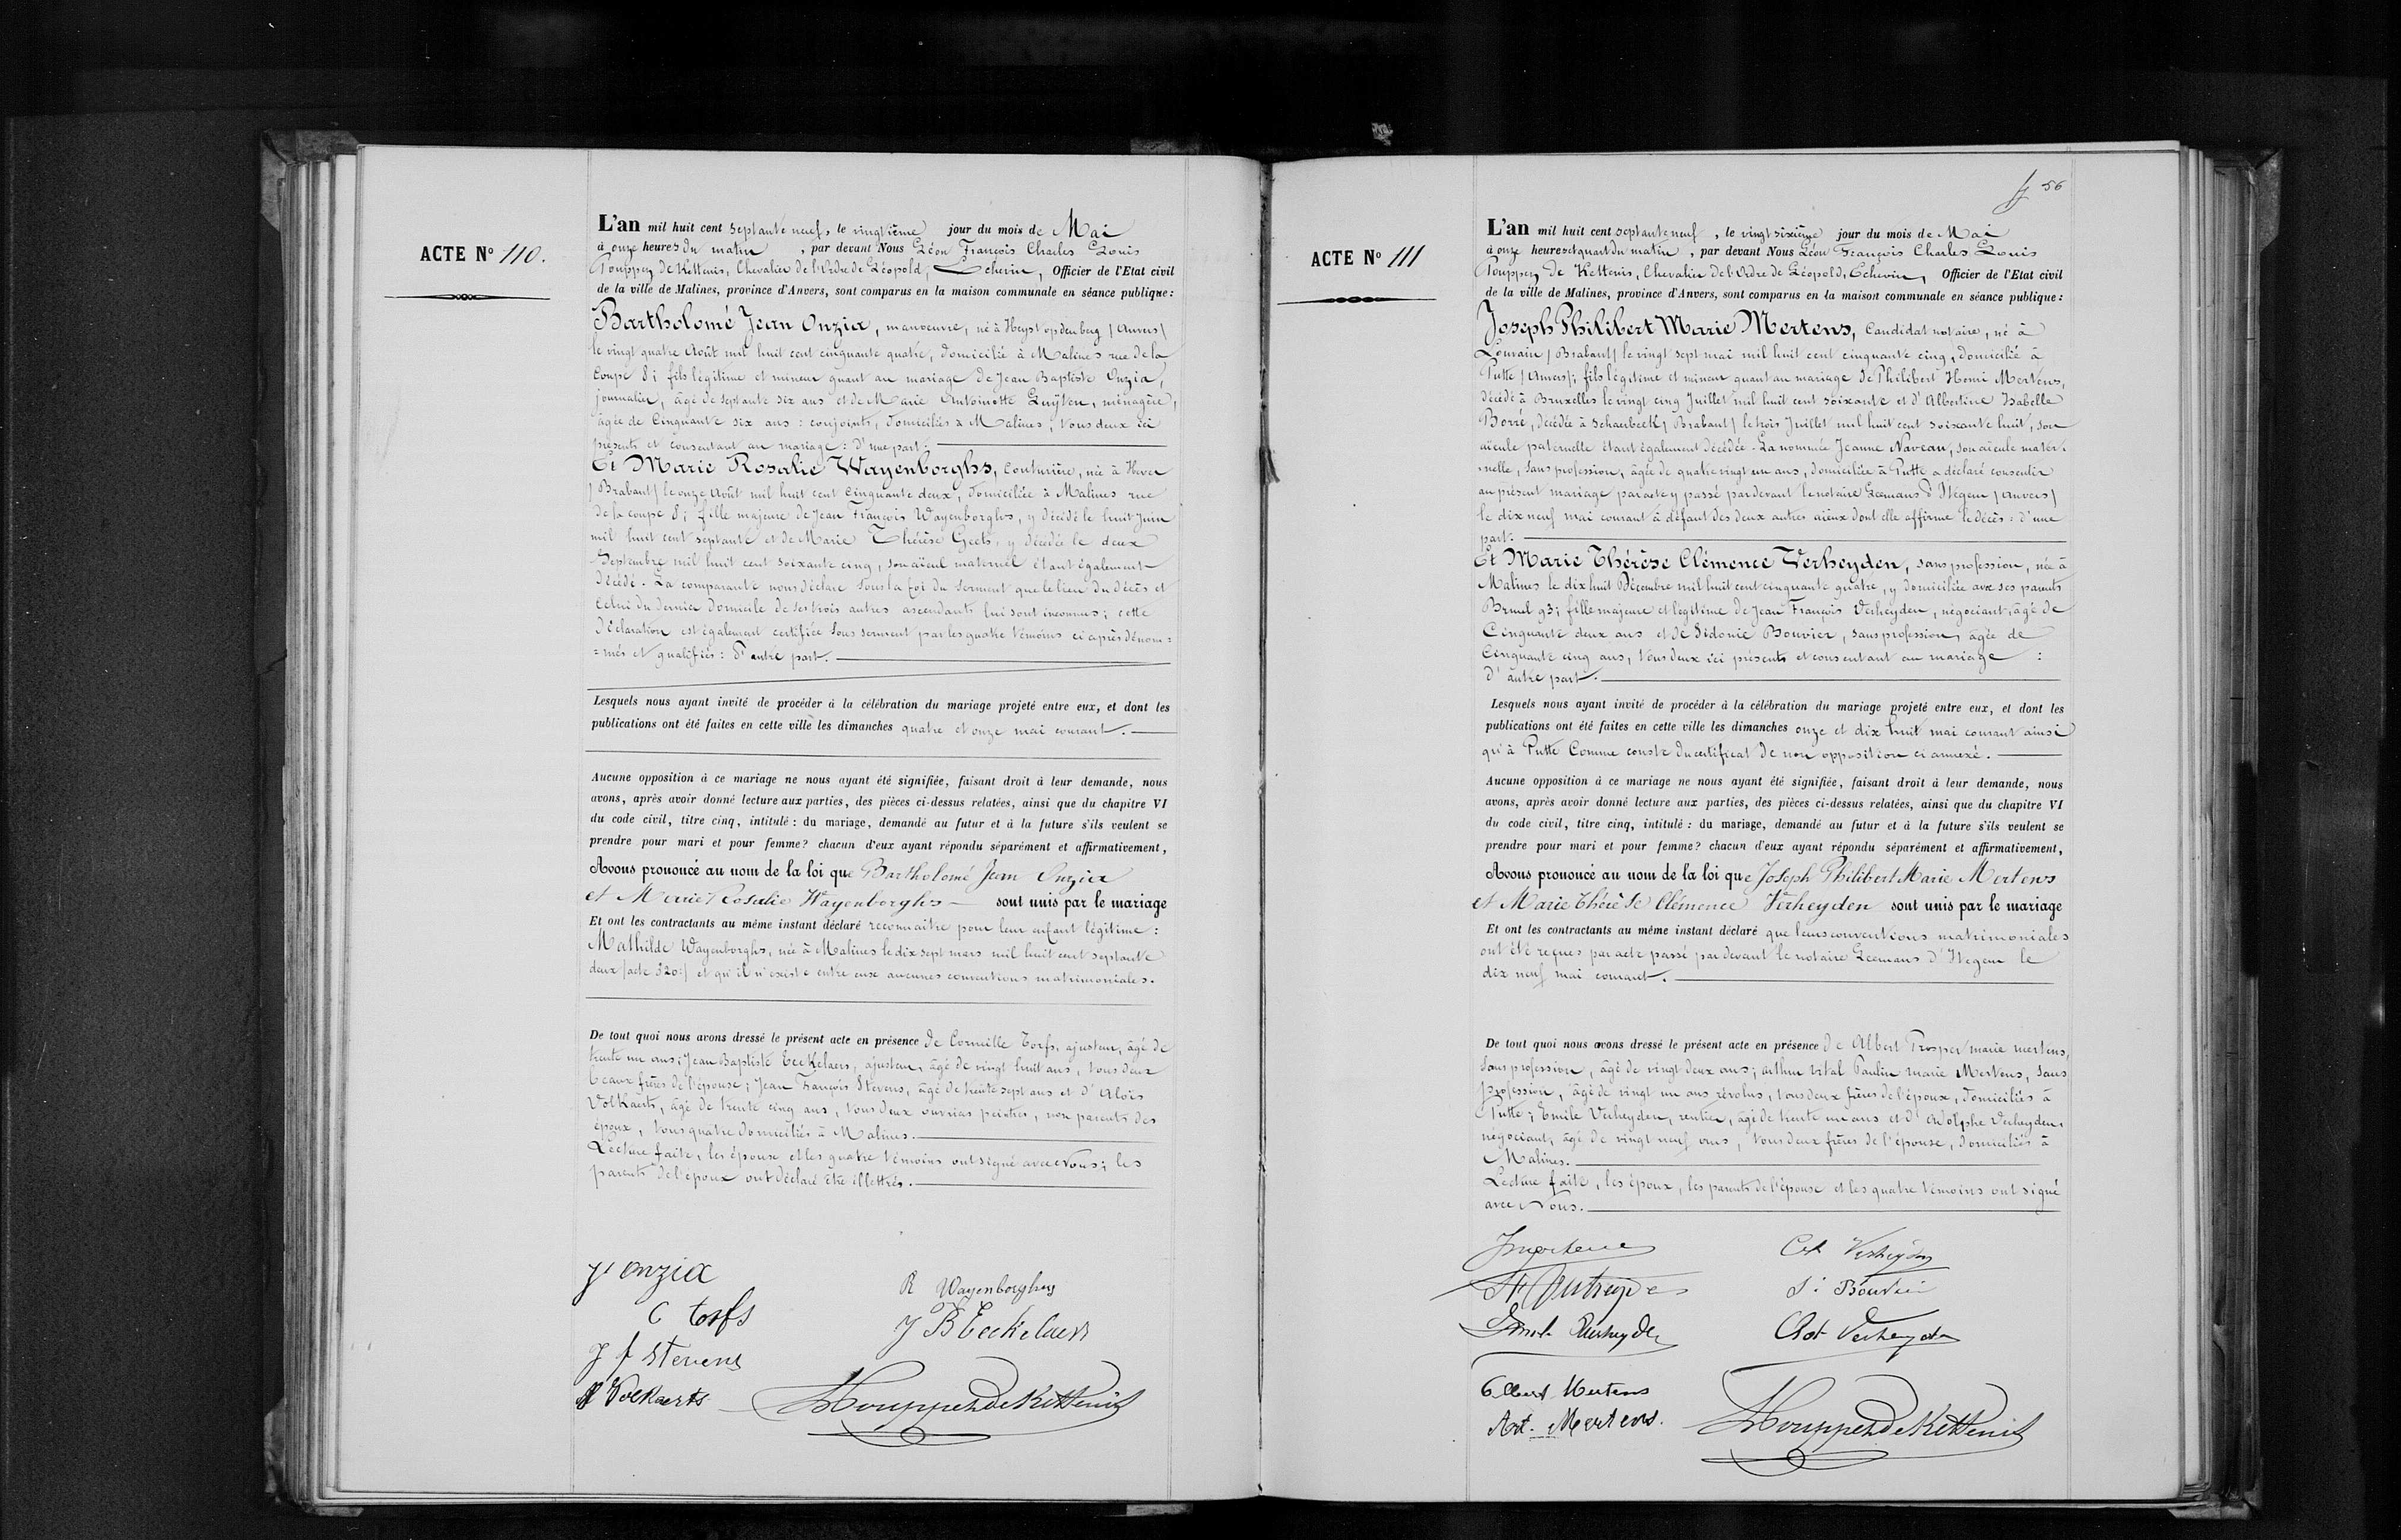 ACTE No 110.
L'an mil huit cent septante neuf, le vingtième jour du mois de Mai
à onze heures du matin, par devant Nous Léon François Charles Louis
Pouppez de Kettenis, Chevalier de l'Ordre de Léopold, Echevin, Officier de l'Etat civil
de la ville de Malines, province d'Anvers, sont comparus en la maison communale en séance publique:
Bartholomé Jean Onzia, manoeuvre, né à Heyst op den berg / Anvers /
le vingt quatre Août mil huit cent cinquante quatre, domicilié à Malines rue de la
Coupe 8; fils légitime et mineur quant au mariage de Jean Baptiste Onzia,
journalier, âgé de septante six ans et de Marie Antoinette Luyten, ménagère,
âgée de Cinquante six ans: conjoints, domiciliés à Malines; tous deux ici
présents et consentant au mariage: d'une part.
Et Marie Rosalie Wayenborghs, Couturière, née à Hever
/ Brabant / le onze Août mil huit cent Cinquante deux, domiciliée à Malines rue
de la coupe 8; fille majeure de Jean François Wayenborghs, y décédé le huit Juin
mil huit cent septante et de Marie Thérèse Geets, y décédée le deux
Septembre mil huit cent soixante cinq, son aïeul maternel étant également
décédé. La comparante nous déclare sous la foi du serment que le lieu du décès et
Celui du dernier domicile de ses trois autres ascendants lui sont inconnus; cette
déclaration est également certifiée sous serment par les quatre témoins ci après dénom=
=més et qualifiés: d'autre part.
Lesquels nous ayant invité de procéder à la célébration du mariage projeté entre eux, et dont les
publications ont été faites en cette ville les dimanches quatre et onze mai courant.
Aucune opposition à ce mariage ne nous ayant été signifiée, faisant droit à leur demande, nous
avons, après avoir donné lecture aux parties, des pièces ci-dessus relatées, ainsi que du chapitre VI
du code civil, titre cinq, intitulé: du mariage, demandé au futur et à la future s'ils veulent se
prendre pour mari et pour femme? chacun d'eux ayant répondu séparément et affirmativement,
Avons prononcé au nom de la loi que Bartholomé Jean Onzia
et Marie Rosalie Wayenborghs sont unis par le mariage
Et ont les contractants au même instant déclaré reconnaître pour leur enfant légitime:
Mathilde Wayenborghs, née à Malines le dix sept mars mil huit cent septante
deux / acte 320: / et qu'il n'existe entre eux aucunes conventions matrimoniales.
De tout quoi nous avons dressé le présent acte en présence de Corneille Torfs, ajusteur, âgé de
trente un ans; Jean Baptiste Eeckelaers, ajusteur, âgé de vingt huit ans, tous deux
beaux frères de l'épouse; Jean François Stevens, âgé de trente sept ans et d'Aloïs
Volkaerts, âgé de trente cinq ans, tous deux ouvriers peintres, non parents des
époux, tous quatre domiciliés à Malines.
Lecture faite, les époux et les quatre témoins ont signé avec Nous; les
parents de l'époux ont déclaré être illettrés.
J Onzia
R Wayenborghs
C torfs
J B Eeckelaers
J f Stevens
A Volkaerts
LPouppezdeKettenis
56
ACTE No 111
L'an mil huit cent septante neuf, le vingt sixième jour du mois de Mai
à onze heures et quart du matin, par devant Nous Léon François Charles Louis
Pouppez de Kettenis, Chevalier de l'Ordre de Léopold, Echevin, Officier de l'Etat civil
de la ville de Malines, province d'Anvers, sont comparus en la maison communale en séance publique:
Joseph Philibert Marie Mertens, Candidat notaire, né à
Louvain / Brabant / le vingt sept mai mil huit cent cinquante cinq, domicilié à
Putte / Anvers /; fils légitime et mineur quant au mariage de Philibert Henri Mertens,
décédé à Bruxelles le vingt cinq Juillet mil huit cent soixante et d'Albertine Isabelle
Borré, décédée à Schaerbeek / Brabant / le trois Juillet mil huit cent soixante huit, son
aïeule paternelle étant également décédée. La nommée Jeanne Naveau, son aïeule mater=
=nelle, sans profession, âgée de quatre vingt un ans, domiciliée à Putte a déclaré consentir
au présent mariage par acte y passé par devant le notaire Leemans d'Itegem / Anvers /
le dix neuf mai courant à défaut des deux autres aïeux dont elle affirme le décès: d'une
part.
Et Marie Thérèse Clémence Verheyden, sans profession, née à
Malines le dix huit Décembre mil huit cent cinquante quatre, y domiciliée avec ses parents
Bruul 93; fille majeure et légitime de Jean François Verheyden, négociant, âgé de
Cinquante deux ans et de Sidonie Bouvier, sans profession, âgée de
Cinquante cinq ans, tous deux ici présents et consentant au mariage:
d'autre part.
Lesquels nous ayant invité de procéder à la célébration du mariage projeté entre eux, et dont les
publications ont été faites en cette ville les dimanches onze et dix huit mai courant ainsi
qu'à Putte Comme conste du certificat de non opposition ci annexé.
Aucune opposition à ce mariage ne nous ayant été signifiée, faisant droit à leur demande, nous
avons, après avoir donné lecture aux parties, des pièces ci-dessus relatées, ainsi que du chapitre VI
du code civil, titre cinq, intitulé: du mariage, demandé au futur et à la future s'ils veulent se
prendre pour mari et pour femme? chacun d'eux ayant répondu séparément et affirmativement,
Avons prononcé au nom de la loi que Joseph Philibert Marie Mertens
et Marie Thérèse Clémence Verheyden sont unis par le mariage
Et ont les contractants au même instant déclaré que leurs conventions matrimoniales
ont été reçues par acte passé par devant le notaire Leemans d'Itegem le
dix neuf mai courant.
De tout quoi nous avons dressé le présent acte en présence de Albert Prosper marie mertens,
Sans profession, âgé de vingt deux ans; arthur vital Paulin marie Mertens, sans
profession, âgé de vingt un ans révolus, tous deux frères de l'époux, domiciliés à
Putte; Emile Verheyden, rentier, âgé de trente un ans et d'Adolphe Verheyden,
négociant, âgé de vingt neuf ans, tous deux frères de l'épouse, domiciliés à
Malines.
Lecture faite, les époux, les parents de l'épouse et les quatre témoins ont signé
avec Nous.
JMertens
Verheyden
S. Bouvier
Emile Verheyden
Ad. Verheyden
Albert Mertens
Art. Mertens.
LPouppezdeKettenis